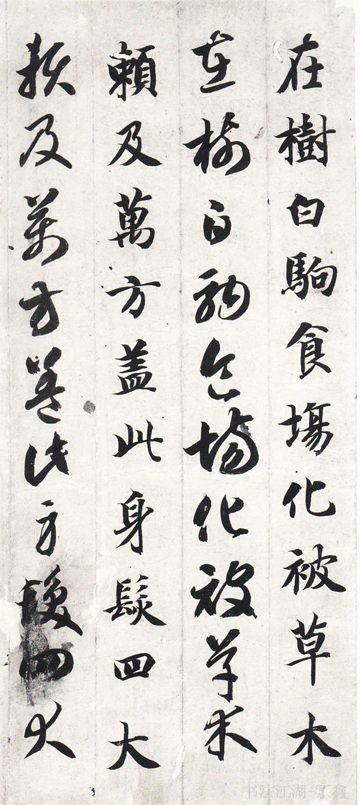 在樹白駒食塲化被草木
在樹白駒食場化被草木
頼及萬方盖此身髮四大
賴及萬方蓋此身髮四大
书法江湖